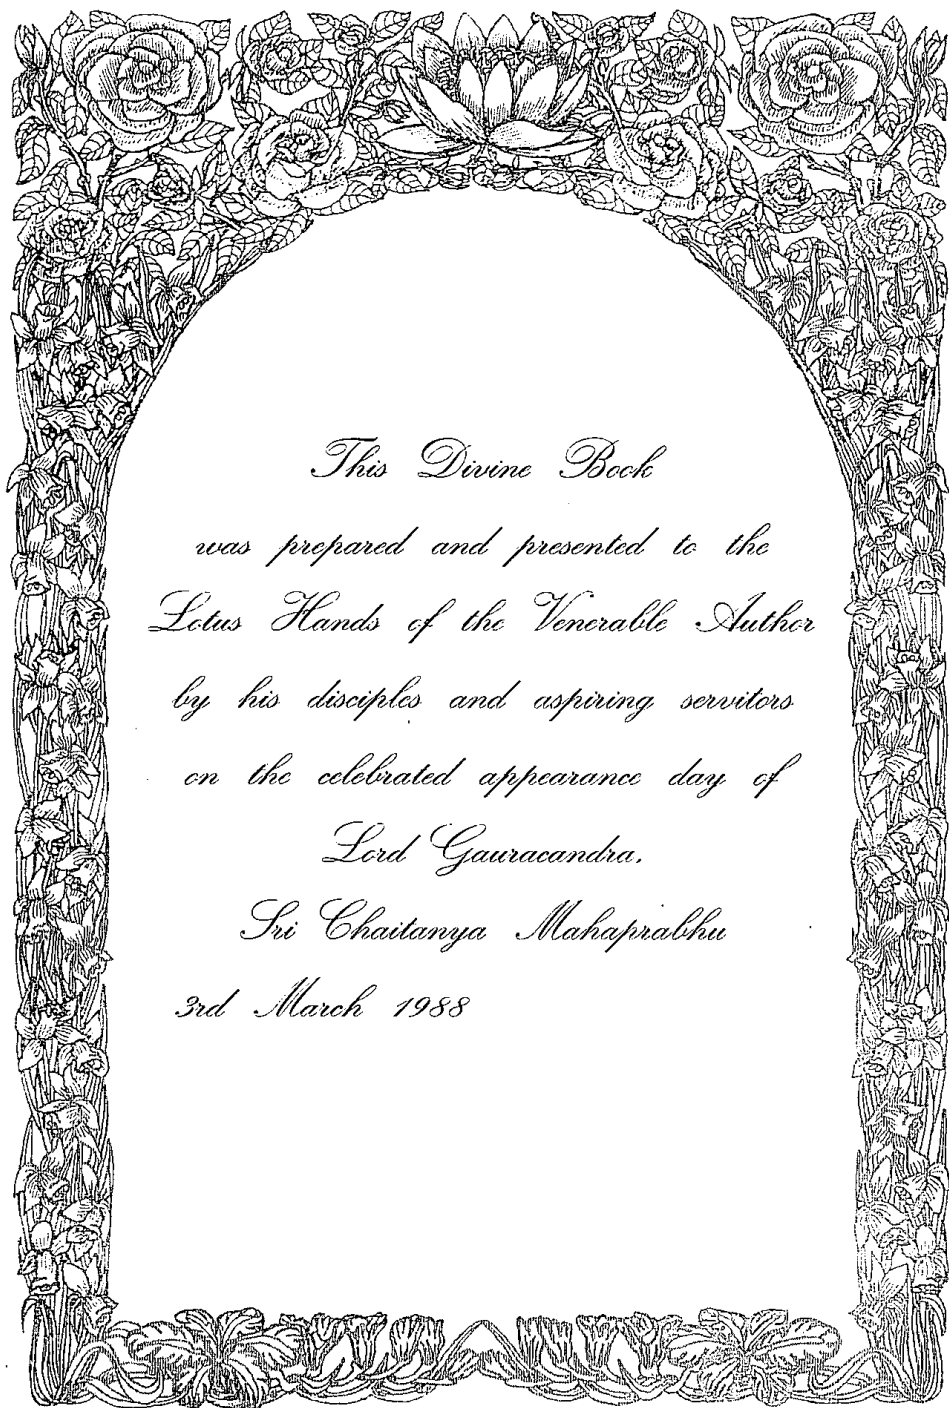 This Divine Book
was prepared and presented to the
Lotus Hands of the Venerable Author
by his disciples and aspiring servitors
on the celebrated appearance day of
Lord Gauracandra,
Sri Chaitanya Mahaprabhu
3rd March 1988